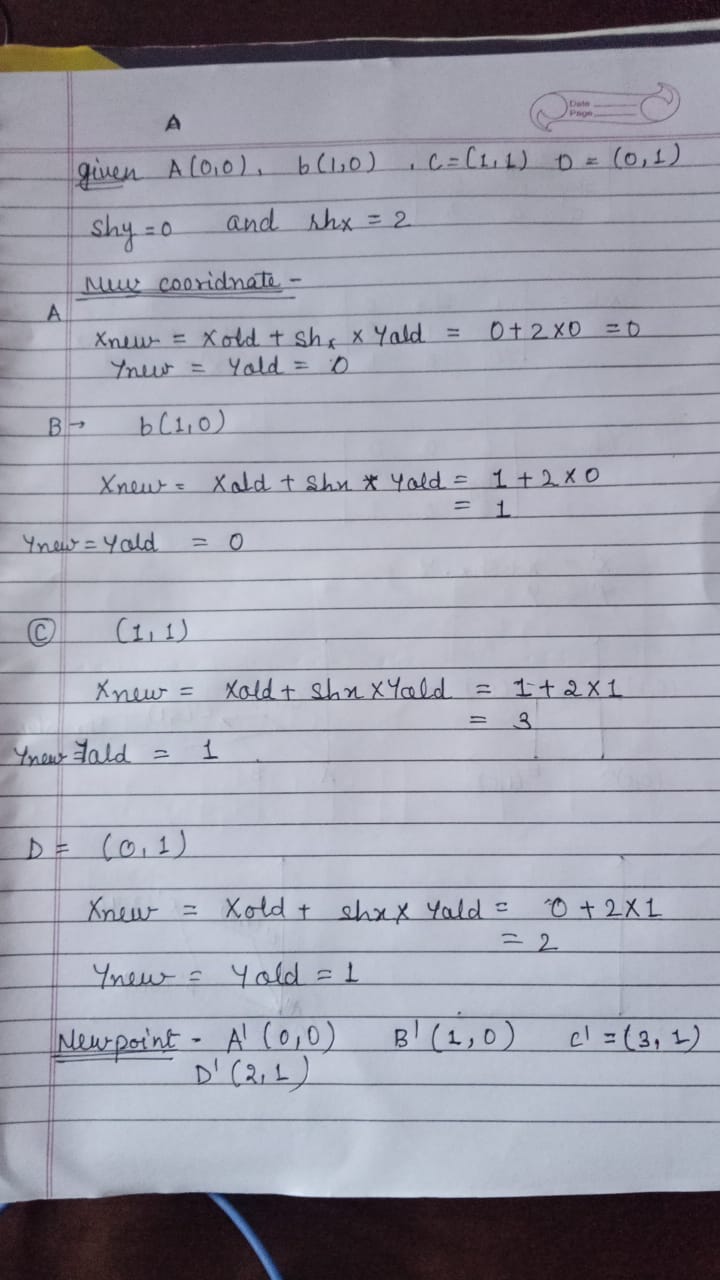 Date
Page
A
given A(0,0), b(1,0), C=(1,1) D = (0,1)
Shy=0 and shx = 2
New cooridnate -
A
Xnew = Xold + shx x Yold = 0+2x0 =0
Ynew = Yold = 0
B→ b(1,0)
Xnew = Xold + Shx * Yold = 1+2x0
= 1
Ynew = Yold = 0
C (1,1)
Xnew = Xold + Shx x Yold = 1+2x1
= 3
Ynew = Yold = 1
D = (0,1)
Xnew = Xold + shx x Yold = 0+2x1
= 2
Ynew = Yold = 1
New point - A' (0,0) B' (1,0) C' = (3,1)
D' (2,1)